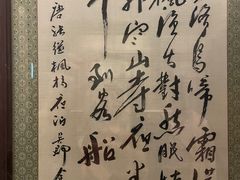 落烏啼霜滿
楓漁火對愁眠
外寒山寺夜半
到客船
唐張繼楓橋夜泊